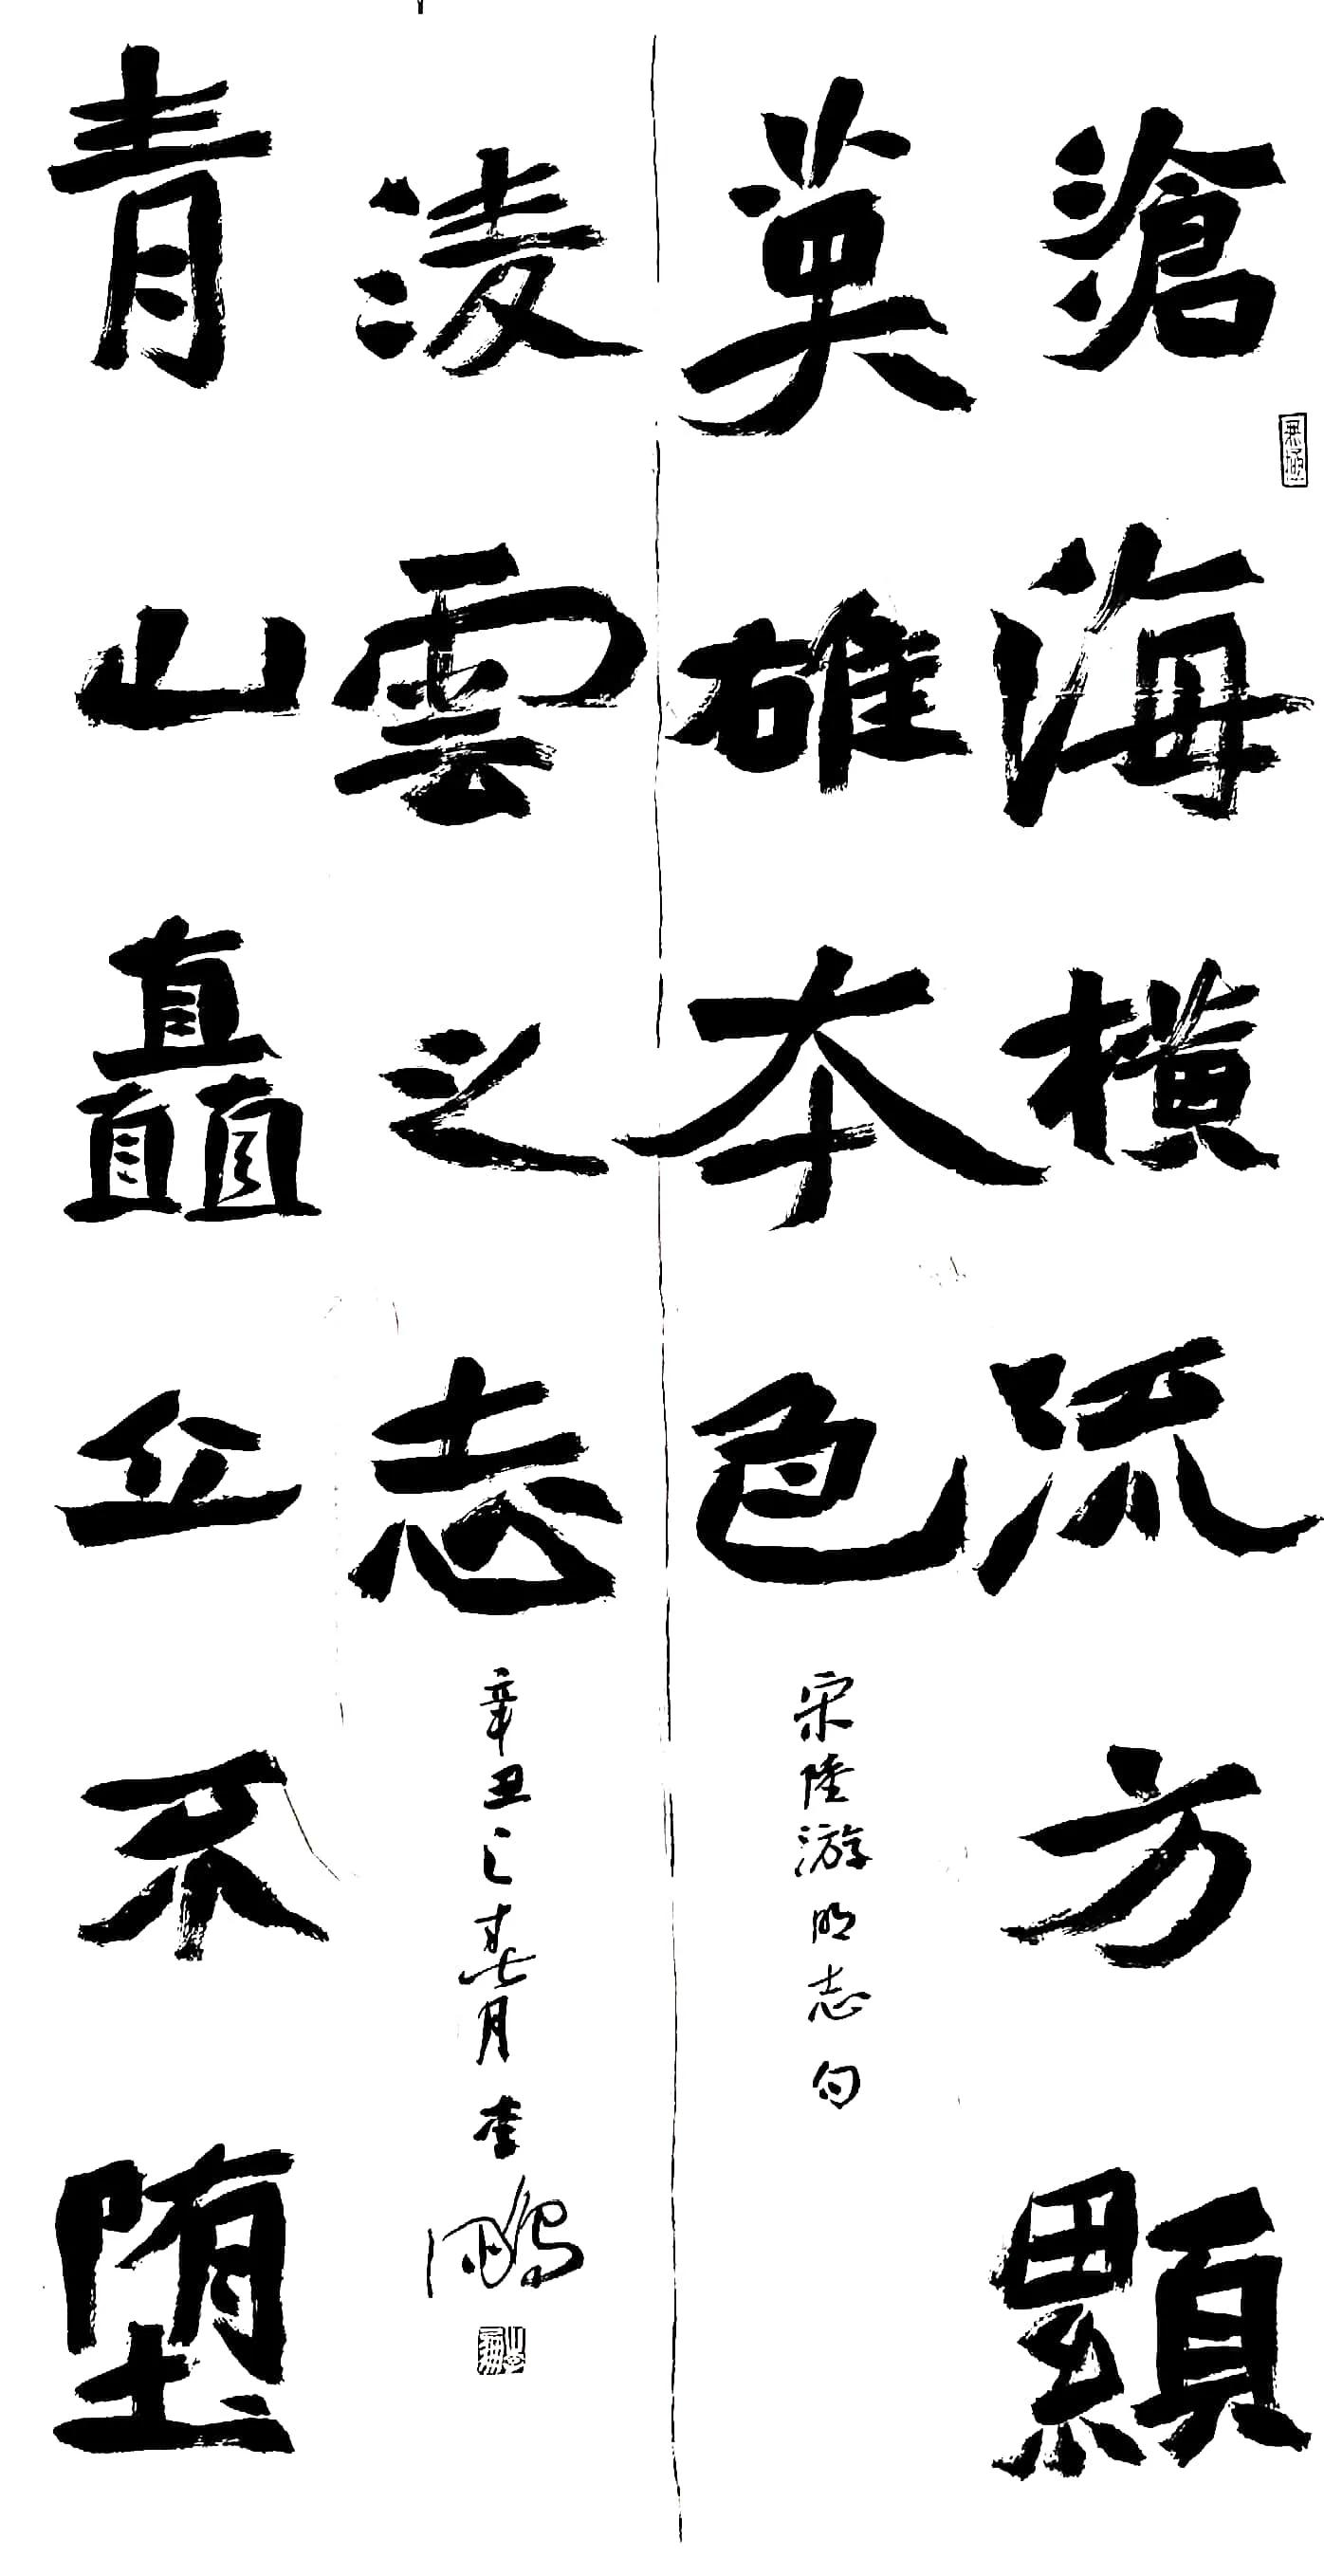 滄海橫流方顯
英雄本色
宋陸游明志句
青山矗立不堕
淩雲之志
辛丑之春月李鵬